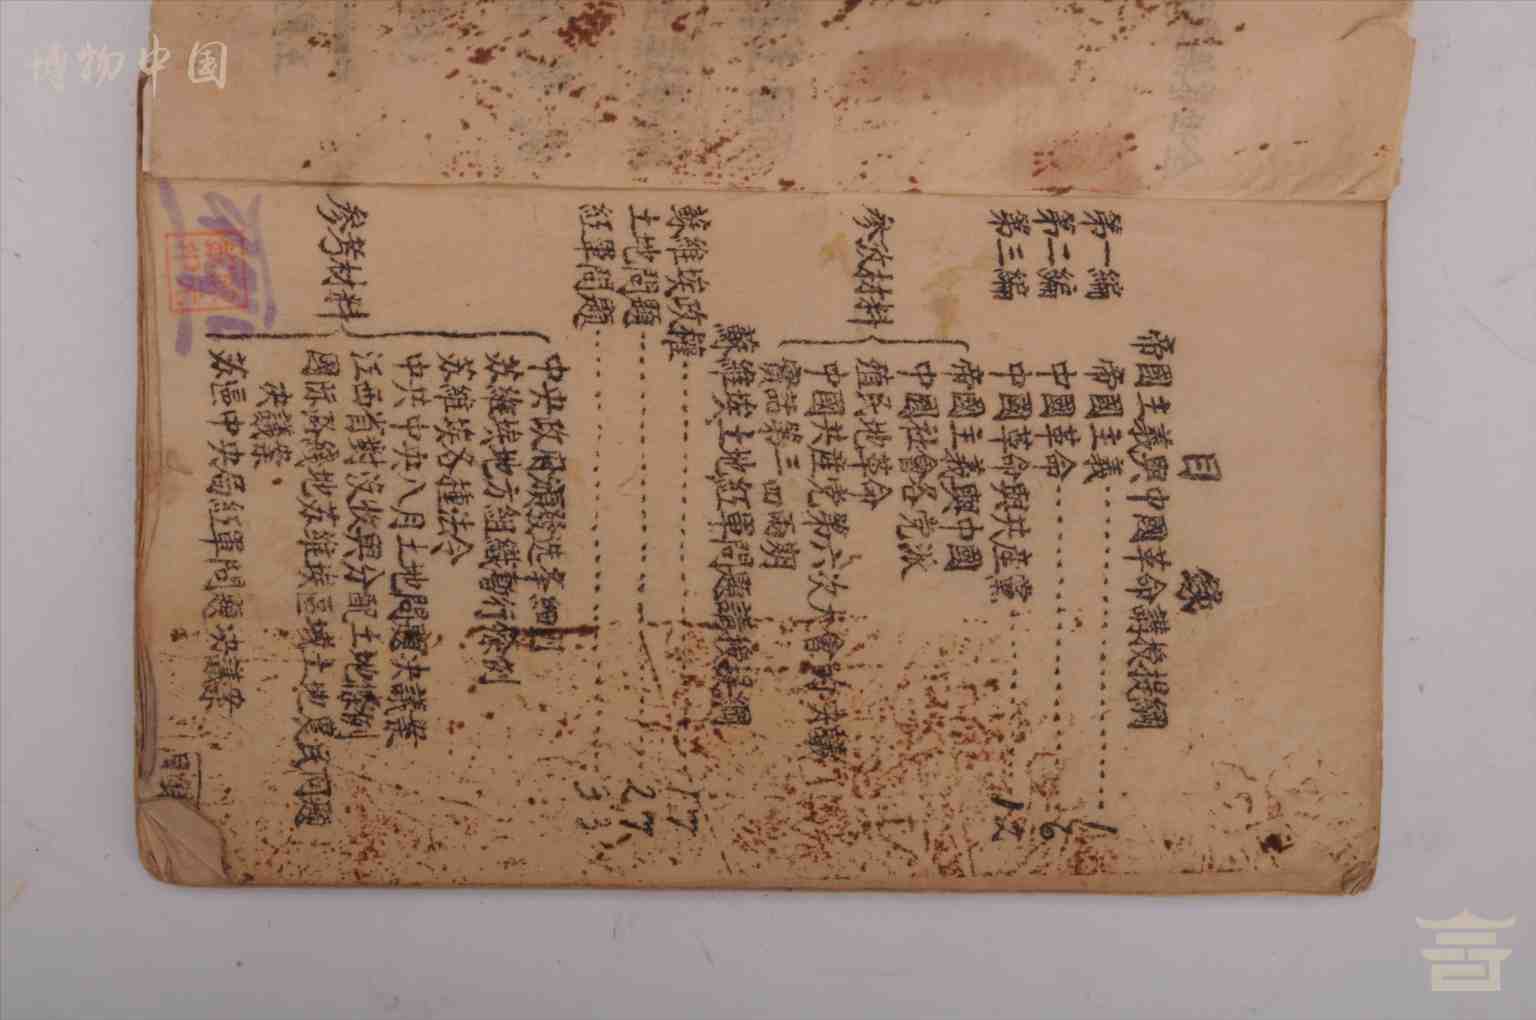 博物中国
目錄
帝國主義與中國革命講授提綱
第一編 帝國主義………1
第二編 中國革命………6
第三編 中國革命與共産黨………12
参攷材料
帝國主義與中國
中國社會各党派
殖民地革命
中國共産党第六次大會的决議
實話第三四兩期
蘇維埃土地紅軍問題講授提綱
蘇維埃政權………17
土地問題………27
紅軍問題………33
参考材料
中央政府頒發选举細則
苏維埃地方組織暫行條例
苏維埃各種法令
中共中央八月土地問題决議案
江西省對没收與分配土地條例
國际路綫地苏維埃區域土地農民問題
决議案
苏區中央局紅軍問題决議案